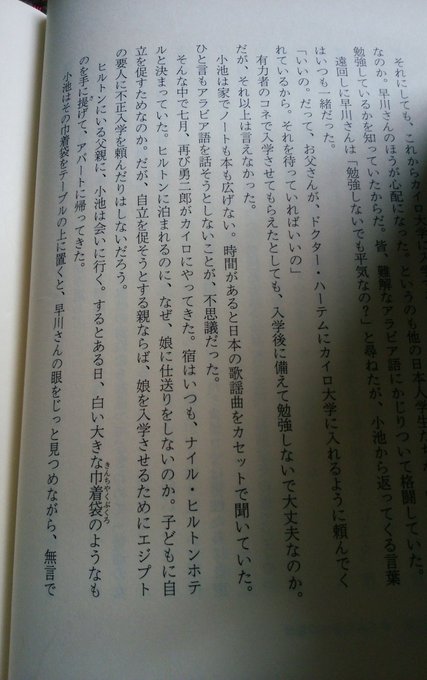 それにしても、これからカイロ大
なのか。早川さんのほうが心配になった。というのも他の日本人学生た
勉強しているかを知っていたからだ。皆、難解なアラビア語にかじりついて格闘していた。
遠回しに早川さんは「勉強しないでも平気なの？」と尋ねたが、小池から返ってくる言葉
はいつも一緒だった。
「いいの。だって、お父さんが、ドクター・ハーテムにカイロ大学に入れるように頼んでく
れているから。それを待っていればいいの」
有力者のコネで入学させてもらえたとしても、入学後に備えて勉強しないで大丈夫なのか。
だが、それ以上は言えなかった。
小池は家でノートも本も広げない。時間があると日本の歌謡曲をカセットで聞いていた。
ひと言もアラビア語を話そうとしないことが、不思議だった。
そんな中で七月、再び勇二郎がカイロにやってきた。宿はいつも、ナイル・ヒルトンホテ
ルと決まっていた。ヒルトンに泊まれるのに、なぜ、娘に仕送りをしないのか。子どもに自
立を促すためなのか。だが、自立を促そうとする親ならば、娘を入学させるためにエジプト
の要人に不正入学を頼んだりはしないだろう。
ヒルトンにいる父親に、小池は会いに行く。するとある日、白い大きな巾着袋のようなも
のを手に提げて、アパートに帰ってきた。
小池はその巾着袋をテーブルの上に置くと、早川さんの眼をじっと見つめながら、無言で